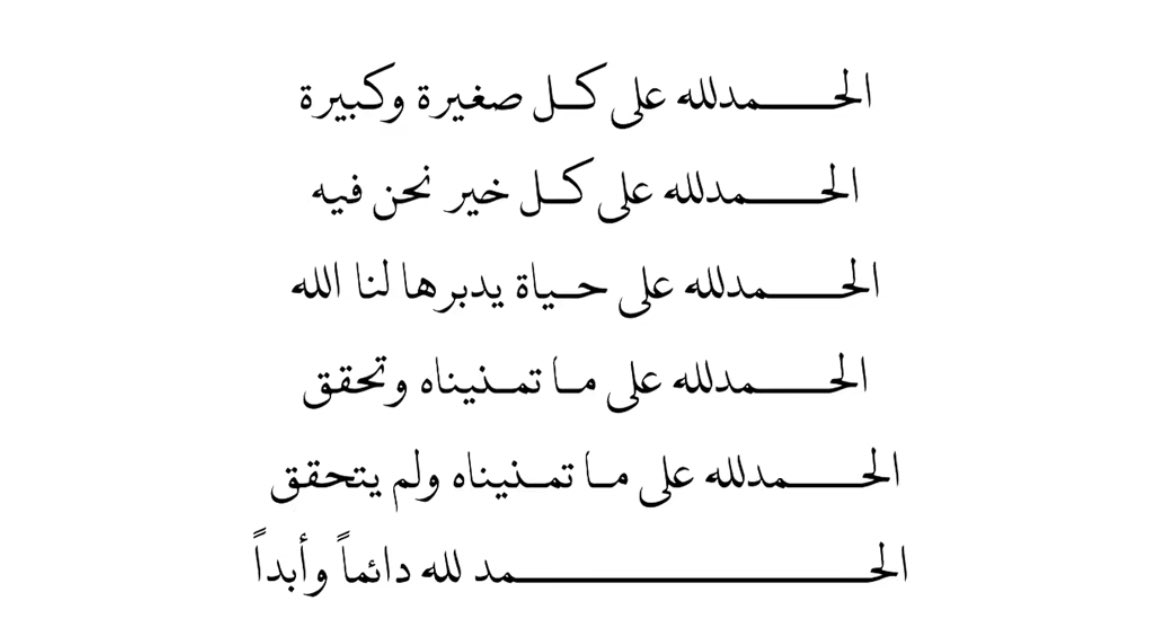 الحـــــمدلله على كـل صغيرة وكبيرة
الحـــــمدلله على كـل خير نحن فيه
الحـــــمدلله على حـياة يدبرها لنا الله
الحـــــمدلله على مـا تمـنيناه وتحقق
الحـــــمدلله على مـا تمـنيناه ولم يتحقق
الحـــــــــــــــــــــمد لله دائماً وأبداً